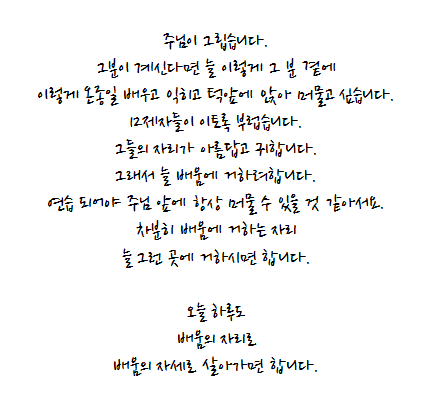 주님이 그립습니다.
그분이 계신다면 늘 이렇게 그 분 곁에
이렇게 온종일 배우고 익히고 턱앞에 앉아 머물고 싶습니다.
12제자들이 이토록 부럽습니다.
그들의 자리가 아름답고 귀합니다.
그래서 늘 배움에 거하려합니다.
연습 되어야 주님 앞에 항상 머물 수 있을 것 같아서요.
차분히 배움에 거하는 자리
늘 그런 곳에 거하시면 합니다.
오늘 하루도
배움의 자리로
배움의 자세로 살아가면 합니다.